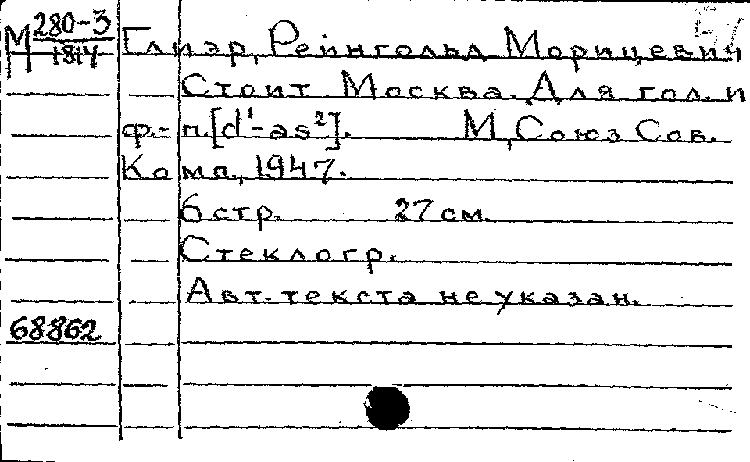 М 280-3
1814
Глиэр, Рейнгольд Морицевич
Стоит Москва. Для гол. и
ф.-п. [d¹-as²]. М, Союз Сов.
Комп., 1947.
6 стр. 27 см.
Стеклогр.
Авт. текста не указан.
68862